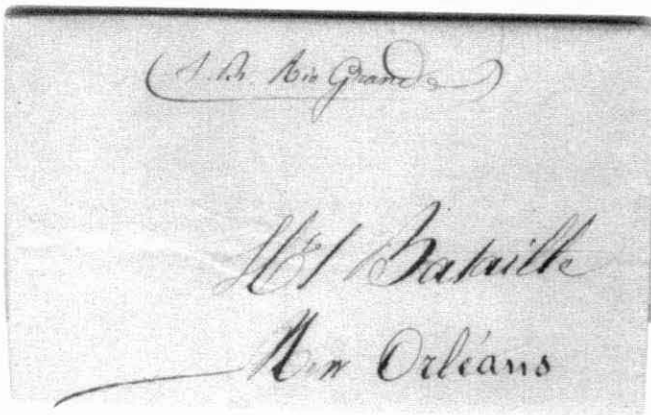 S. B. Rio Grande
Bataille
New Orléans